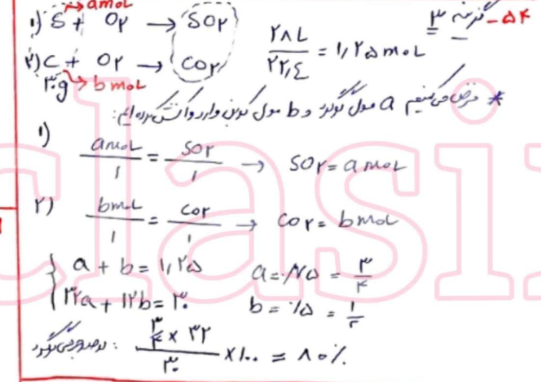 ۵۴- گزینه ۳
۱) S + O۲ → SO۲
a mol
۲) C + O۲ → CO۲
۳۰g b mol
۲۸L / ۲۲,۴ = ۱,۲۵ mol
* فرض می‌کنیم a مول گوگرد و b مول کربن وارد واکنش کرده‌ایم:
۱) a mol / ۱ = SO۲ / ۱ → SO۲ = a mol
۲) b mol / ۱ = CO۲ / ۱ → CO۲ = b mol
a + b = ۱,۲۵ a = ۰/۷۵ = ۳/۴
۳۲a + ۱۲b = ۳۰ b = ۰/۵ = ۱/۲
درصد جرمی گوگرد : ۳/۴ × ۳۲ / ۳۰ × ۱۰۰ = ۸۰٪
clasi